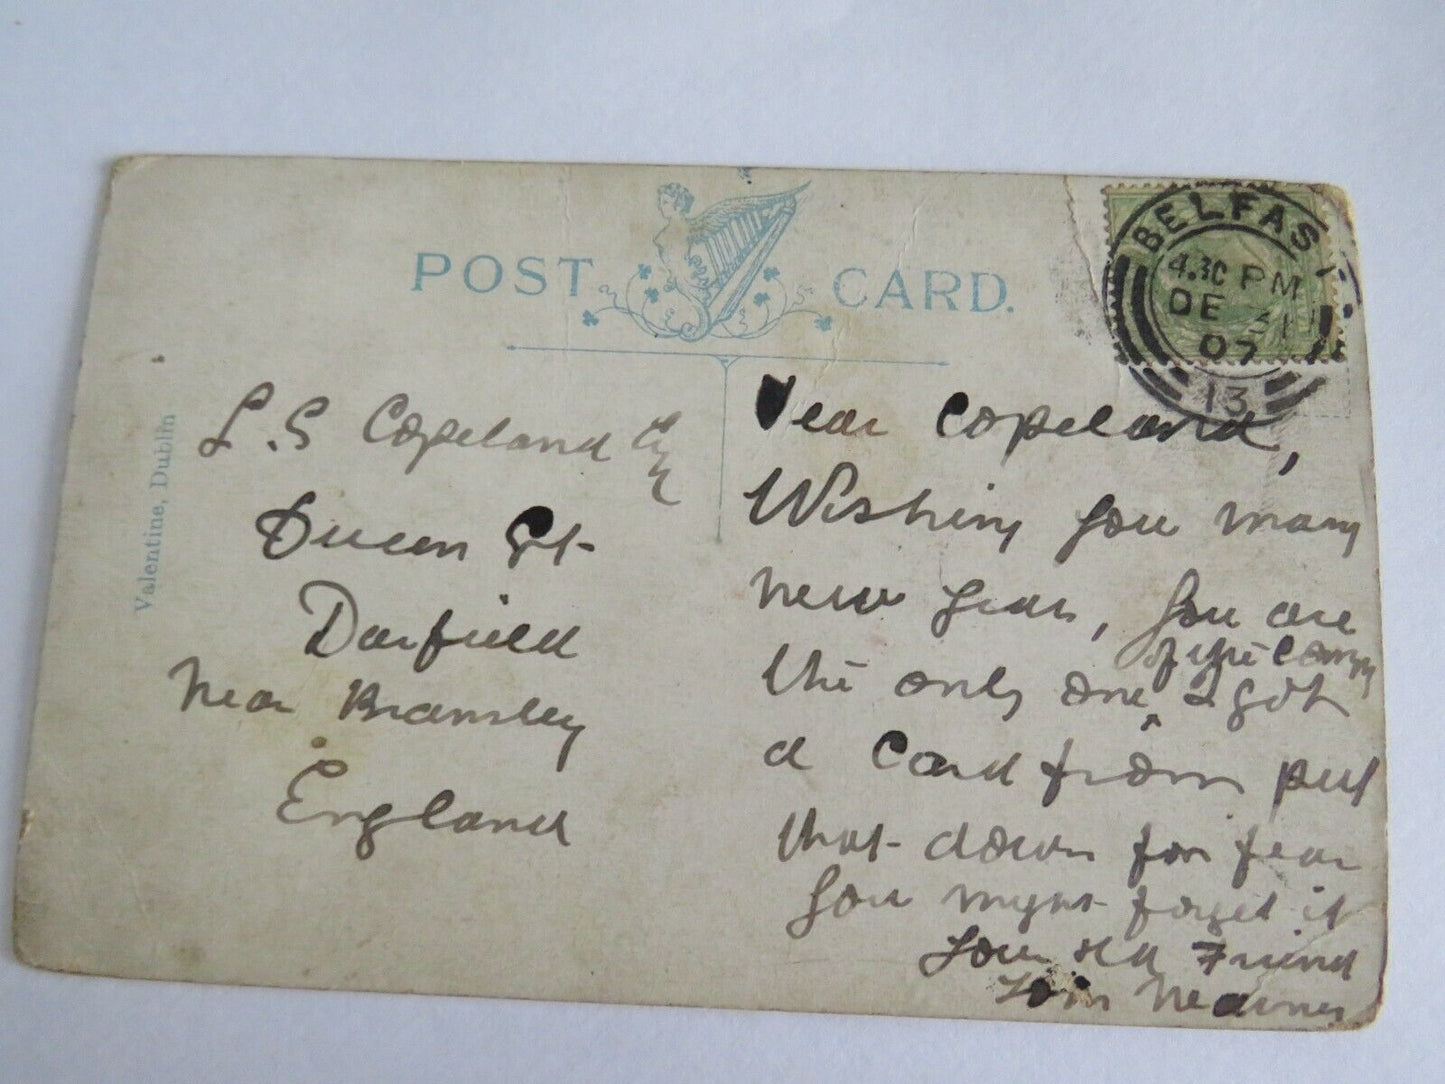 POST CARD.
BELFAST
4.30 PM
DE 31
07
13
Valentine, Dublin
L. S Copeland Esq
Queen St
Darfield
Near Barnsley
England
Dear Copeland,
Wishing you many
new years, you are
of the Comy
the only one I got
a card from put
that down for fear
you might forget it
Your old Friend